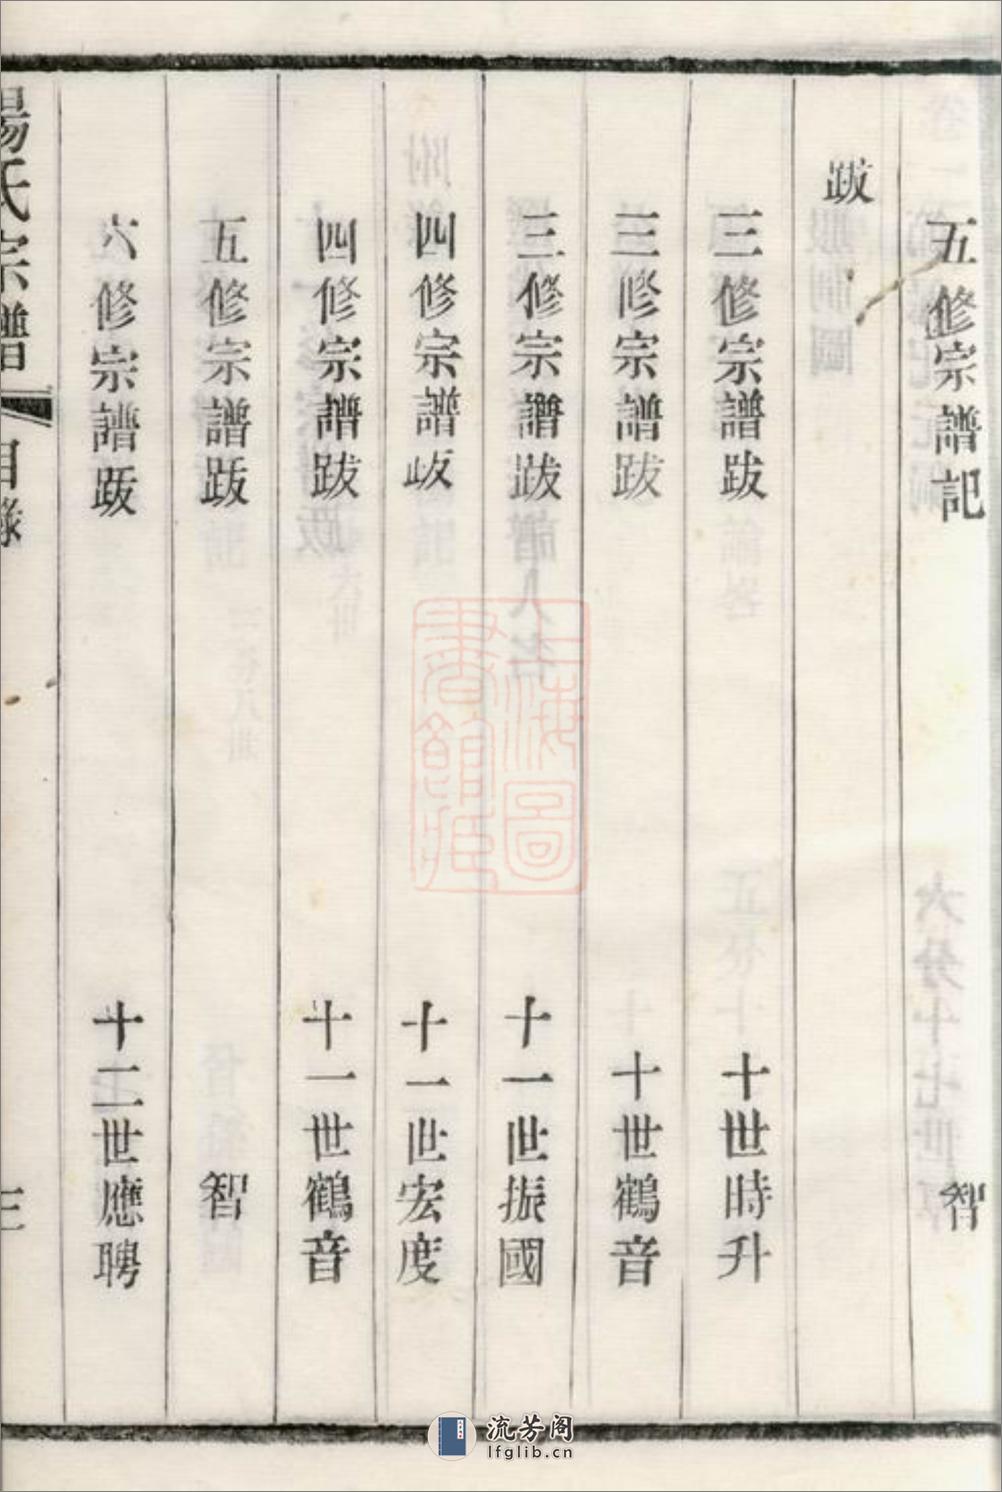 五修宗譜記 智
跋
三修宗譜跋 十世時升
三修宗譜跋 十世鶴音
三修宗譜跋 十一世振國
四修宗譜跋 十一世宏度
四修宗譜跋 十一世鶴音
五修宗譜跋 智
六修宗譜跋 十二世應聘
楊氏宗譜 目錄 三
上海圖書館藏
流芳阁
lfglib.cn